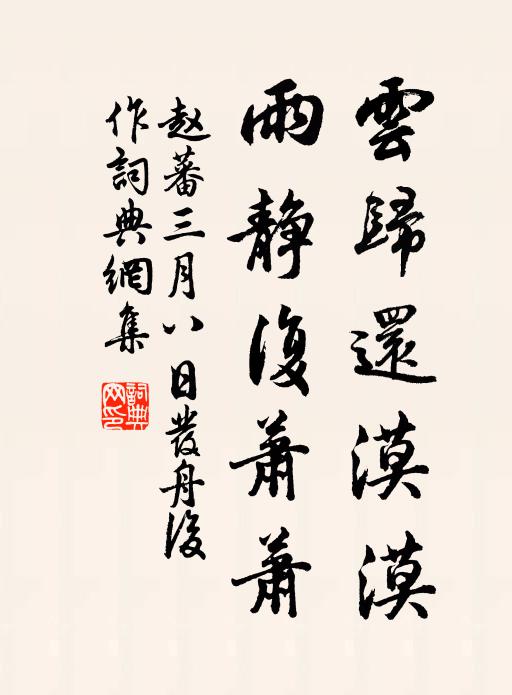 雲歸還漠漠
雨静復蕭蕭
赵蕃三月八日發舟後
作詞典網集
詞典網印